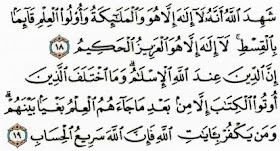 شَهِدَ ٱللَّهُ أَنَّهُۥ لَآ إِلَٰهَ إِلَّا هُوَ وَٱلْمَلَٰٓئِكَةُ وَأُو۟لُوا۟ ٱلْعِلْمِ قَآئِمًۢا
بِٱلْقِسْطِ ۚ لَآ إِلَٰهَ إِلَّا هُوَ ٱلْعَزِيزُ ٱلْحَكِيمُ ١٨
إِنَّ ٱلدِّينَ عِندَ ٱللَّهِ ٱلْإِسْلَٰمُ ۗ وَمَا ٱخْتَلَفَ ٱلَّذِينَ
أُوتُوا۟ ٱلْكِتَٰبَ إِلَّا مِنۢ بَعْدِ مَا جَآءَهُمُ ٱلْعِلْمُ بَغْيًۢا بَيْنَهُمْ ۗ
وَمَن يَكْفُرْ بِـَٔايَٰتِ ٱللَّهِ فَإِنَّ ٱللَّهَ سَرِيعُ ٱلْحِسَابِ ١٩